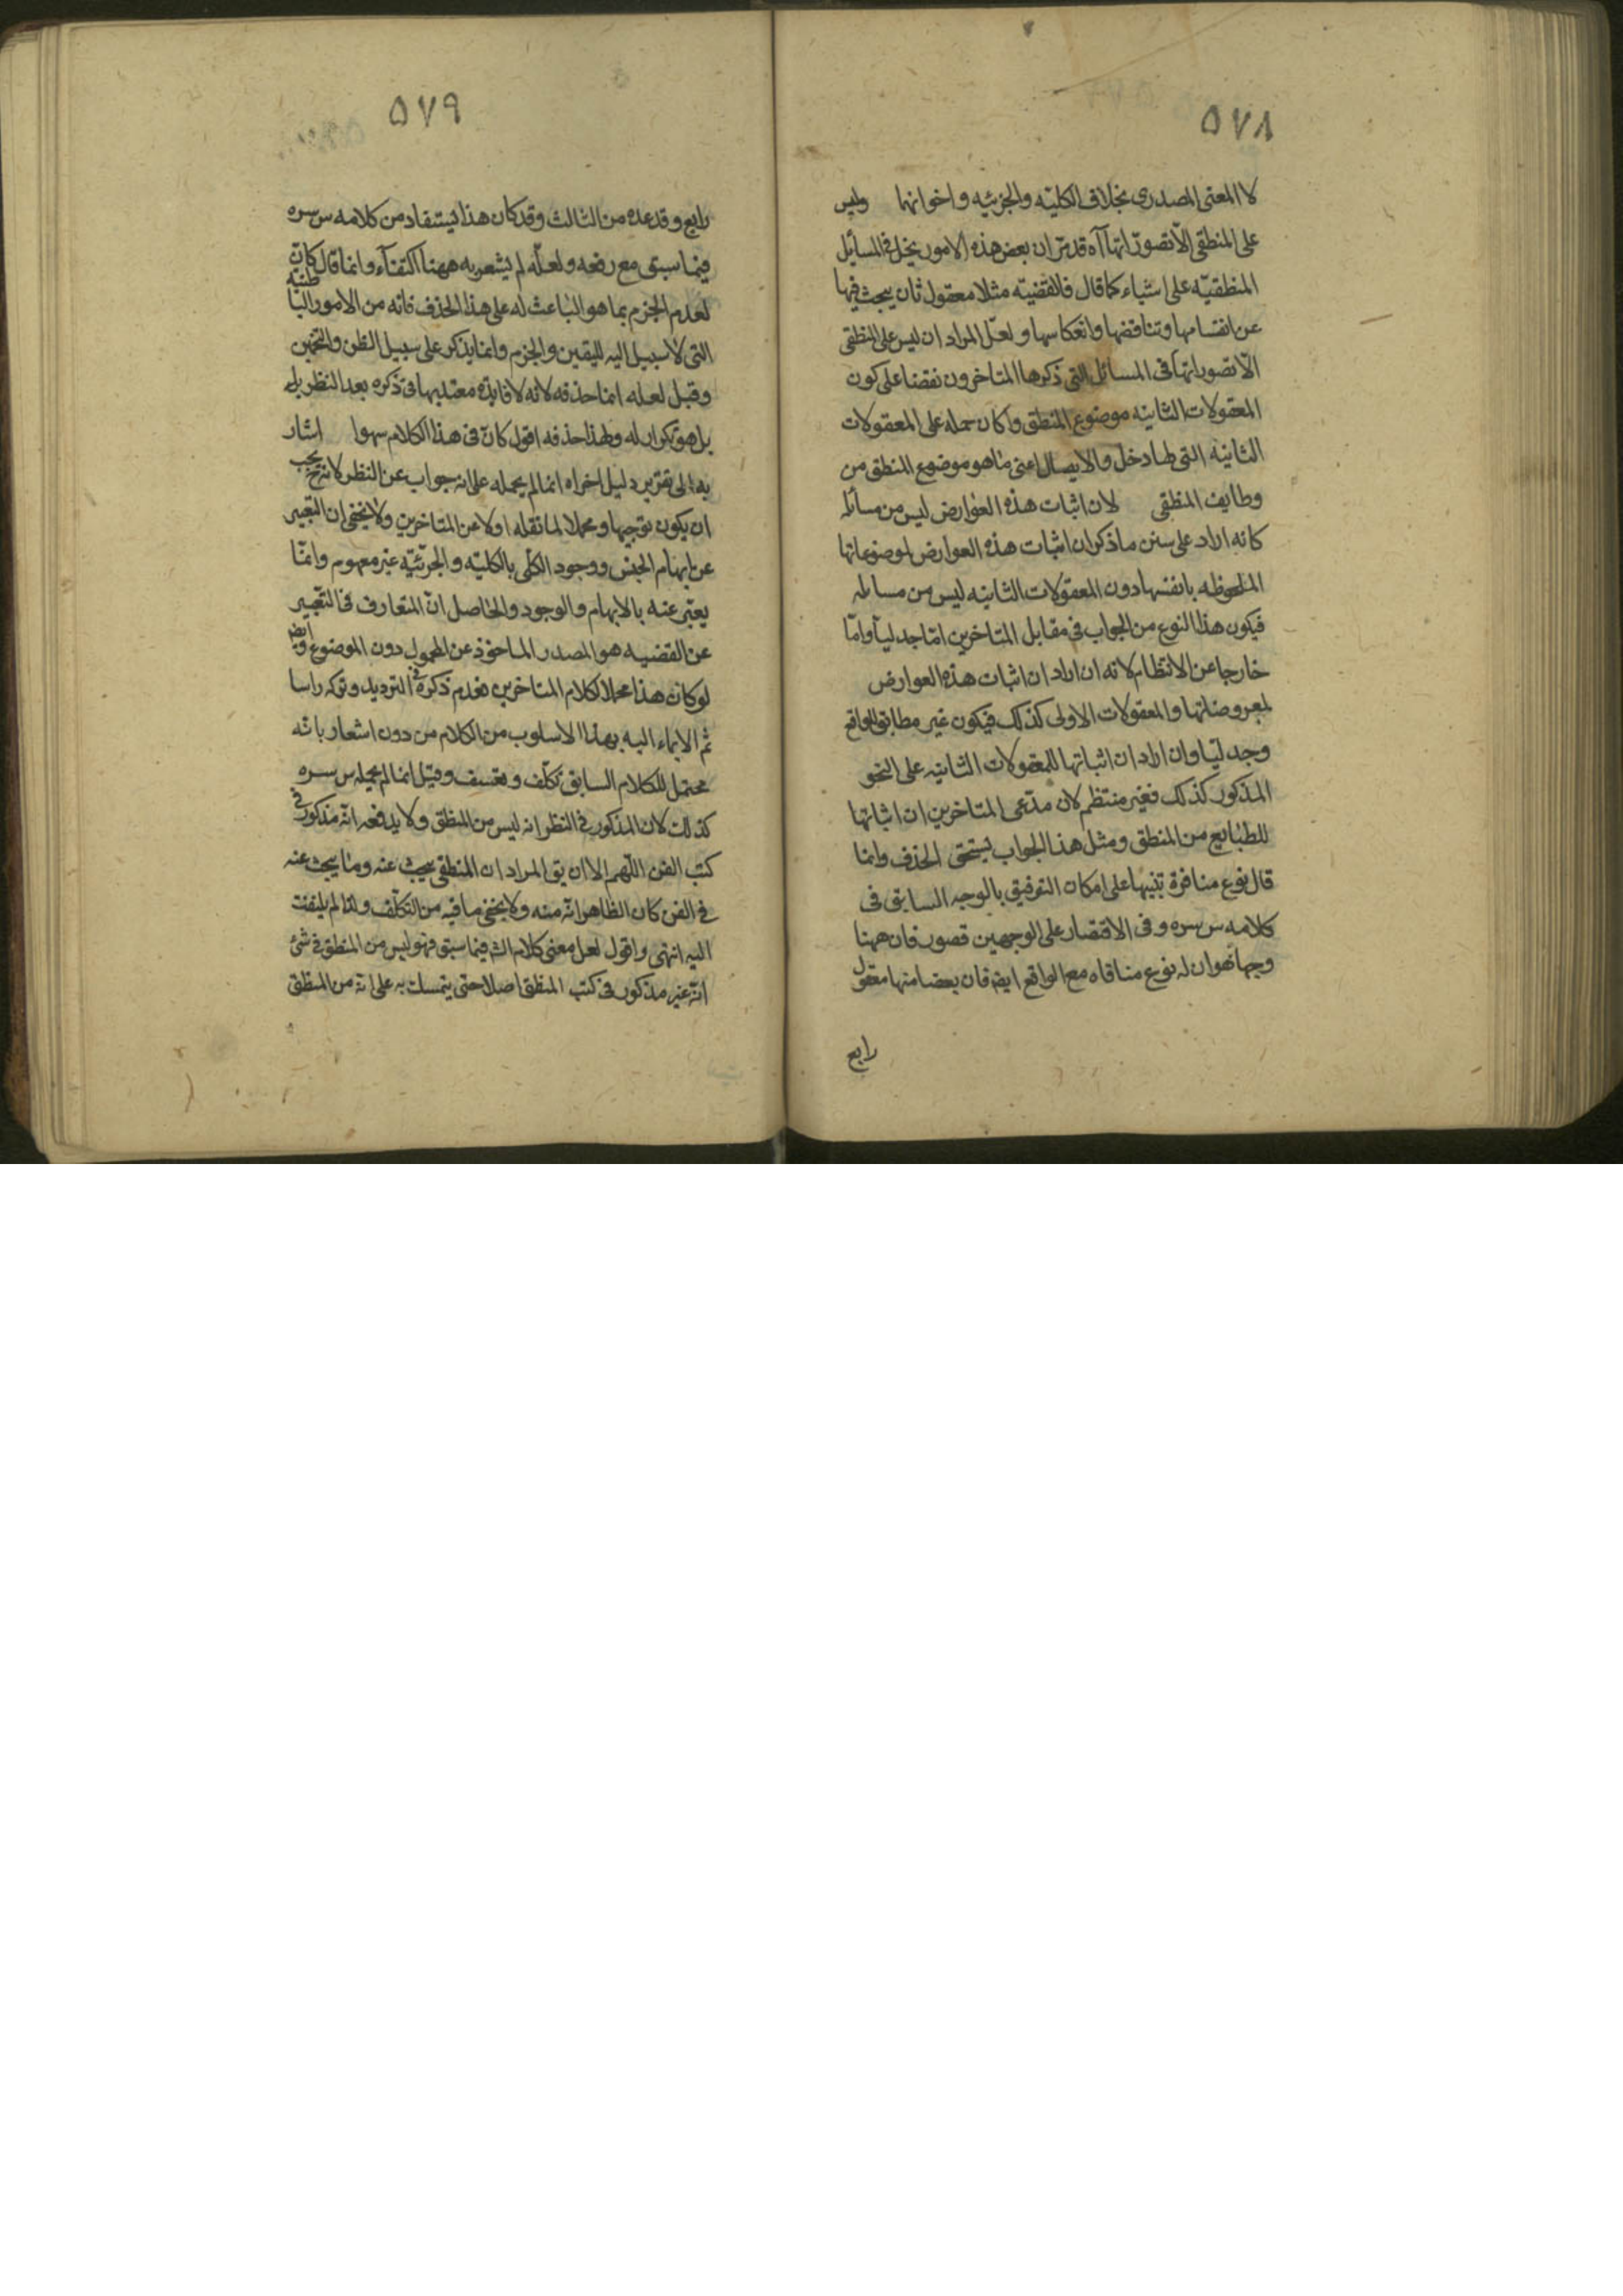 ٥٧٨
لا المعنى المصدرى بخلاف الكليته والجزئيه واخواتها وليس
على المنطقى الا تصوراتها آه قد مر ان بعض هذه الامور يحمل فى المسائل
المنطقيه على اشياء كما قال فالقضيته مثلا معقول ثان يبحث فيها
عن انقسامها وتناقضها وانعكاسها ولعل المراد ان ليس على المنطقى
الا تصوراتها فى المسائل التى ذكرها المتاخرون نقضا على كون
المعقولات الثانيه موضوع المنطق وكان حمله على المعقولات
الثانيه التى لها دخل والايصال اعنى ما هو موضوع المنطق من
وظايف المنطقى لان اثبات هذه العوارض ليس من مسائله
كانه اراد على سنن ما ذكر ان اثبات هذه العوارض لموضوعاتها
الملحوظه بانفسها دون المعقولات الثانيه ليس من مسائله
فيكون هذا النوع من الجواب فى مقابل المتاخرين اما جدليا واما
خارجا عن الانتظام لانه ان اراد ان اثبات هذه العوارض
لمعروضاتها والمعقولات الاولى كذلك فيكون غير مطابق للواقع
وجدليا وان اراد ان اثباتها للمعقولات الثانيه على النحو
المذكور كذلك فغير منتظم لان مدعى المتاخرين ان اثباتها
للطبايع من المنطق ومثل هذا الجواب يستحق الحذف وانما
قال نوع منافرة تنبيها على امكان التوفيق بالوجه السابق فى
كلامه س سره وفى الاقتصار على الوجهين قصور فان ههنا
وجها هو ان له نوع منافاه مع الواقع ايضا فان بعضا منها معقول
رابع
٥٧٩
رابع وقد عده من الثالث وقد كان هذا يستفاد من كلامه س سره
فيما سبق مع رفعه ولعله لم يشعر به ههنا اكتفاء وانما قال كان
لعدم الجزم بما هو الباعث له على هذا الحذف فانه من الامور البا
طنيه
التى لا سبيل اليه لليقين والجزم وانما يذكر على سبيل الظن والتخمين
وقيل لعله انما حذفه لانه لا فايده معتد بها فى ذكره بعد النظر بل
بل هو تكرار له ولهذا حذفه اقول كان فى هذا الكلام سهوا اشار
به الى تقرير دليل اخراه انما لم يحمله على انه جواب عن النظر لانه ح يجب
ان يكون توجيها ومحملا لما نقله اولا عن المتاخرين ولا يخفى ان التعبير
عن ابهام الجنس ووجود الكلى بالكليته والجزئيه غير معهوم وانما
يعبر عنه بالابهام والوجود والحاصل ان المتعارف فى التعبير
عن القضيه هو المصدر الماخوذ عن المحمول دون الموضوع وايضا
لو كان هذا محملا لكلام المتاخرين فعدم ذكره فى الترديد وتركه راسا
ثم الايماء اليه بهذا الاسلوب من الكلام من دون اشعار بانه
محتمل للكلام السابق تكلف وتعسف وقيل انما لم يحمله س سره
كذلك لان المذكور فى النظر انه ليس من المنطق ولا يدفعه انه مذكور فى
كتب الفن اللهم الا ان يق المراد ان المنطقى يبحث عنه وما يبحث عنه
فى الفن كان الظاهر انه منه ولا يخفى ما فيه من التكلف ولذا لم يلتفت
اليه انتهى واقول لعل معنى كلام الش فيما سبق فهو ليس من المنطق فى شئ
انه غير مذكور فى كتب المنطق اصلا حتى يتمسك به على انه من المنطق